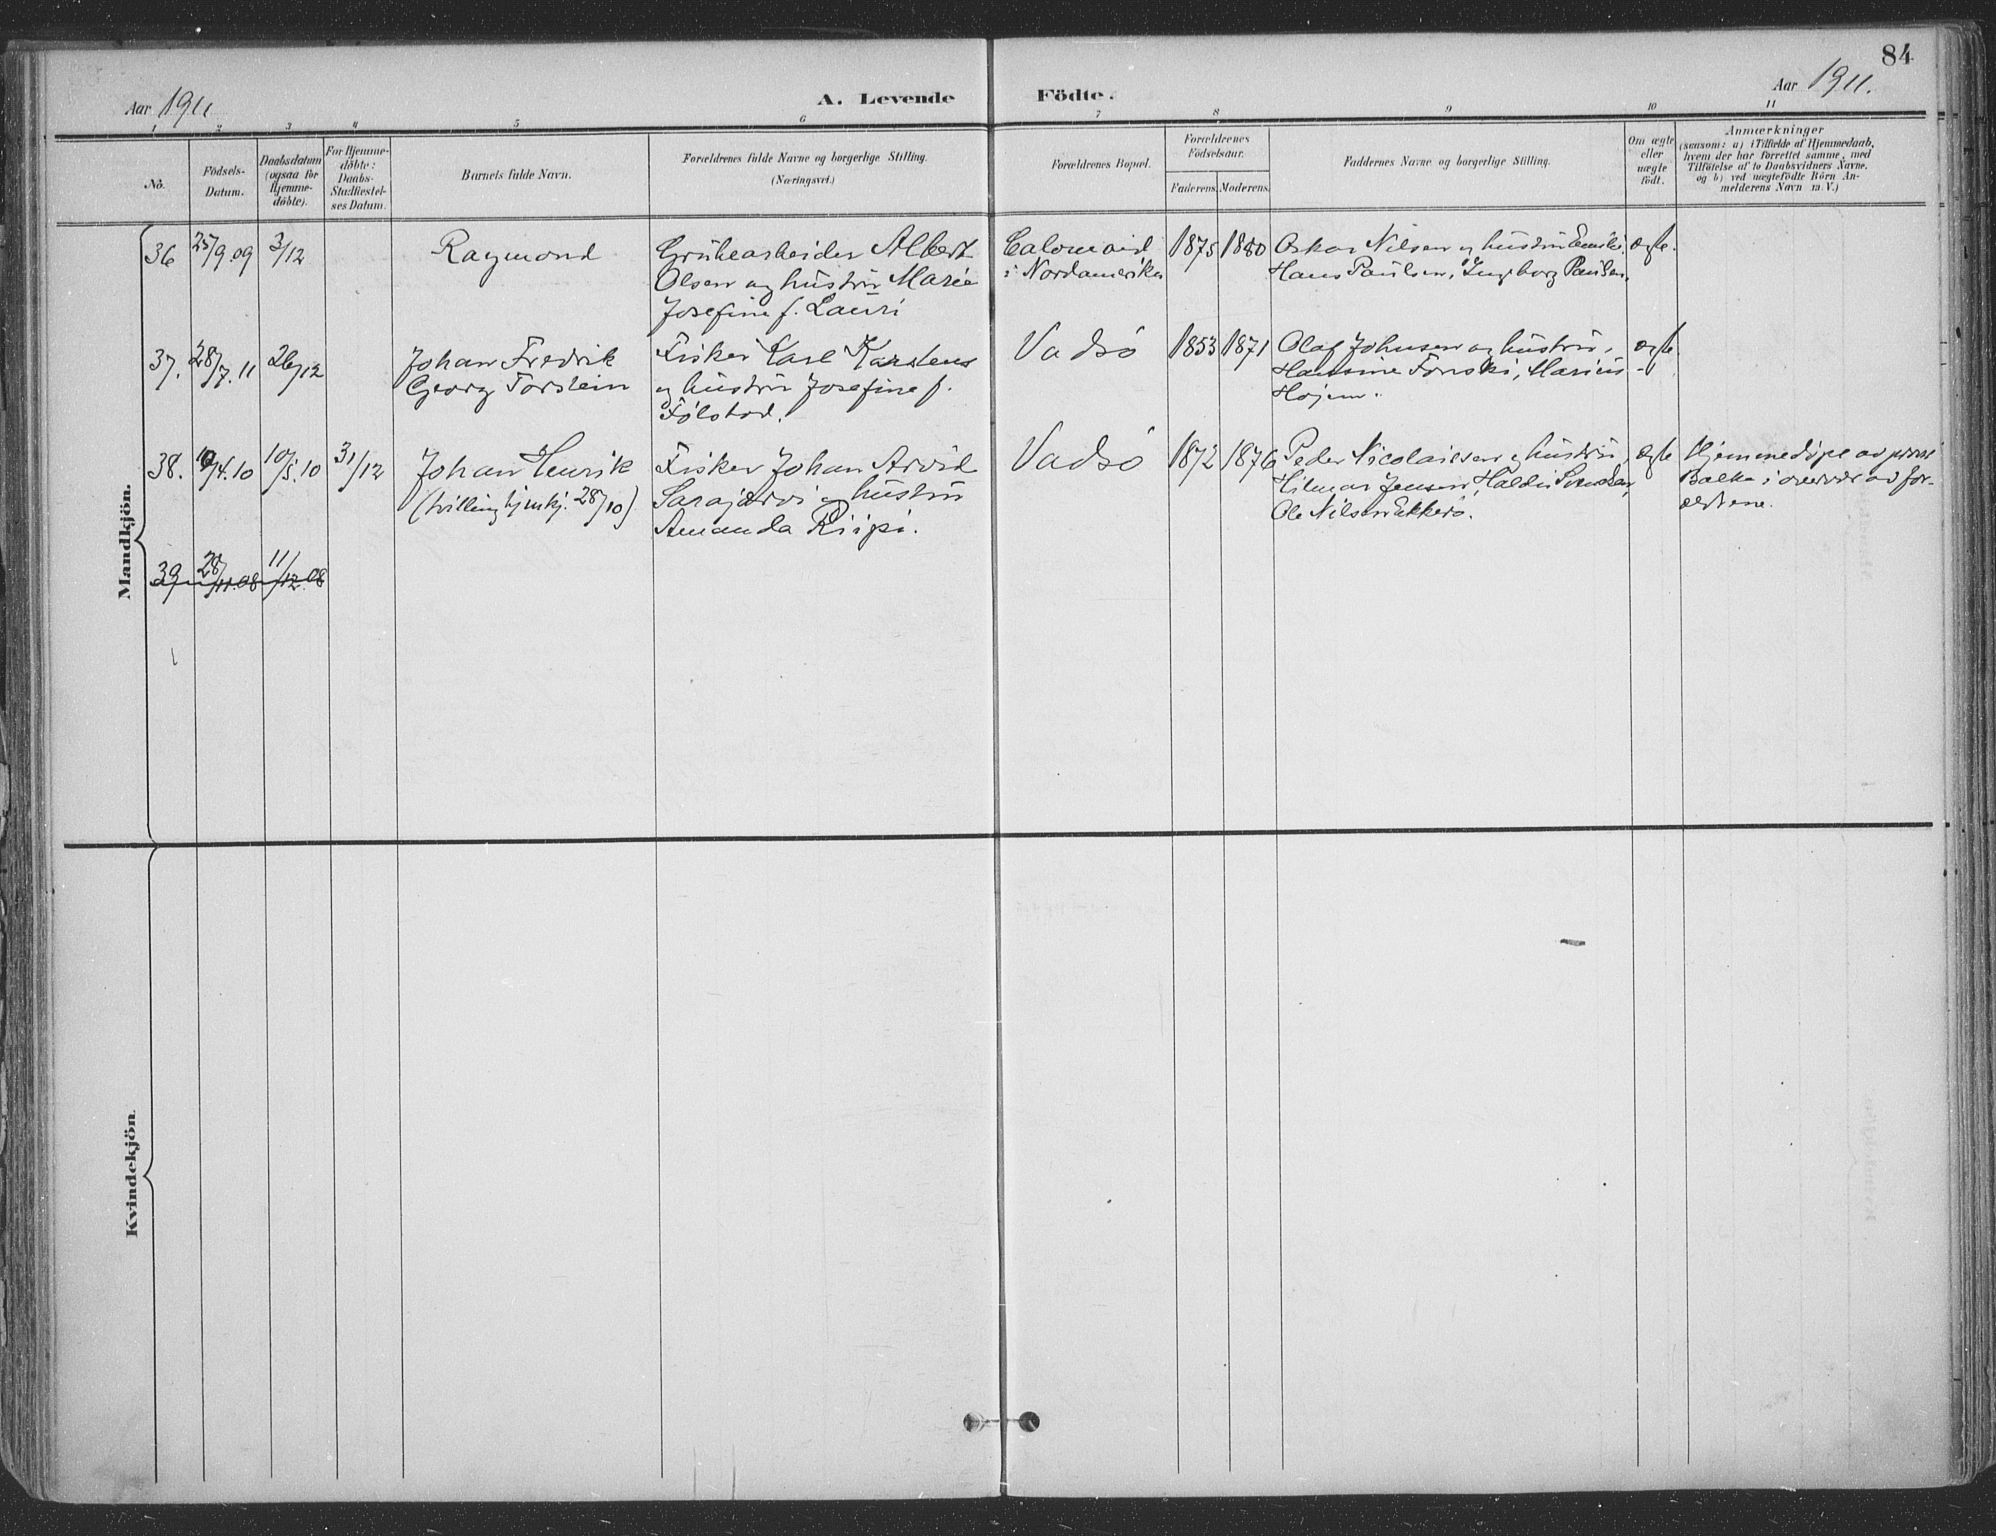 84
Aar 1911
A. Levende Födte.
Aar 1911.
1 2 3 4 5 6 7 8 9 10 11
No.
Födsels-
Datum.
Daabsdatum
(ogsaa for
Hjemme-
döbte).
For Hjemme-
döbte:
Daabs-
Stadfæstel-
ses Datum.
Barnets fulde Navn.
Forældrenes fulde Navne og borgerlige Stilling.
(Næringsvei.)
Forældrenes Bopæl.
Forældrenes
Födselsaar.
Faderens. Moderens.
Faddernes Navne og borgerlige Stilling.
Om ægte
eller
uægte
födt.
Anmærkninger
(saasom: a) i Tilfælde af Hjemmedaab,
hvem der har forrettet samme, med
Tilföielse af to Daabsvidners Navne.
og b) ved uægtefödte Börn An-
melderens Navn m. V.)
Mandkjön.
36 25/9.09 3/12
Raymond
Grubearbeider Albert
Olsen og hustru Marie
Josefine f. Lauri
i Nordamerika
1875 1880
Oskar Nilsen og hustru Emilie
Hans Paulsen, Ingeborg Paulsen.
ægte.
37. 28/7.11 26/12
Johan Fredrik
Georg Torstein
Fisker Karl Karstens
og hustru Josefine f.
Følstad.
Vadsö
1853 1871
Olaf Johnsen og hustru,
Hansine Forski, Marius
Højem.
ægte
38. /4.10 10/5.10 31/12
Johan Henrik
(tvilling hjmkj. 28/10)
Fisker Johan Arvid
Sarajærvi og hustru
Amanda Riipi.
Vadsö
1872 1876
Peder Nicolaisen og hustru,
Hilmar Jensen, Haldis Svendsen,
Ole Nilsen Ekkerö.
ægte
Hjemmedøpt av
Balke i nærvær av for-
ældrene.
39 28/11.08 11/12.08
Kvindekjön.